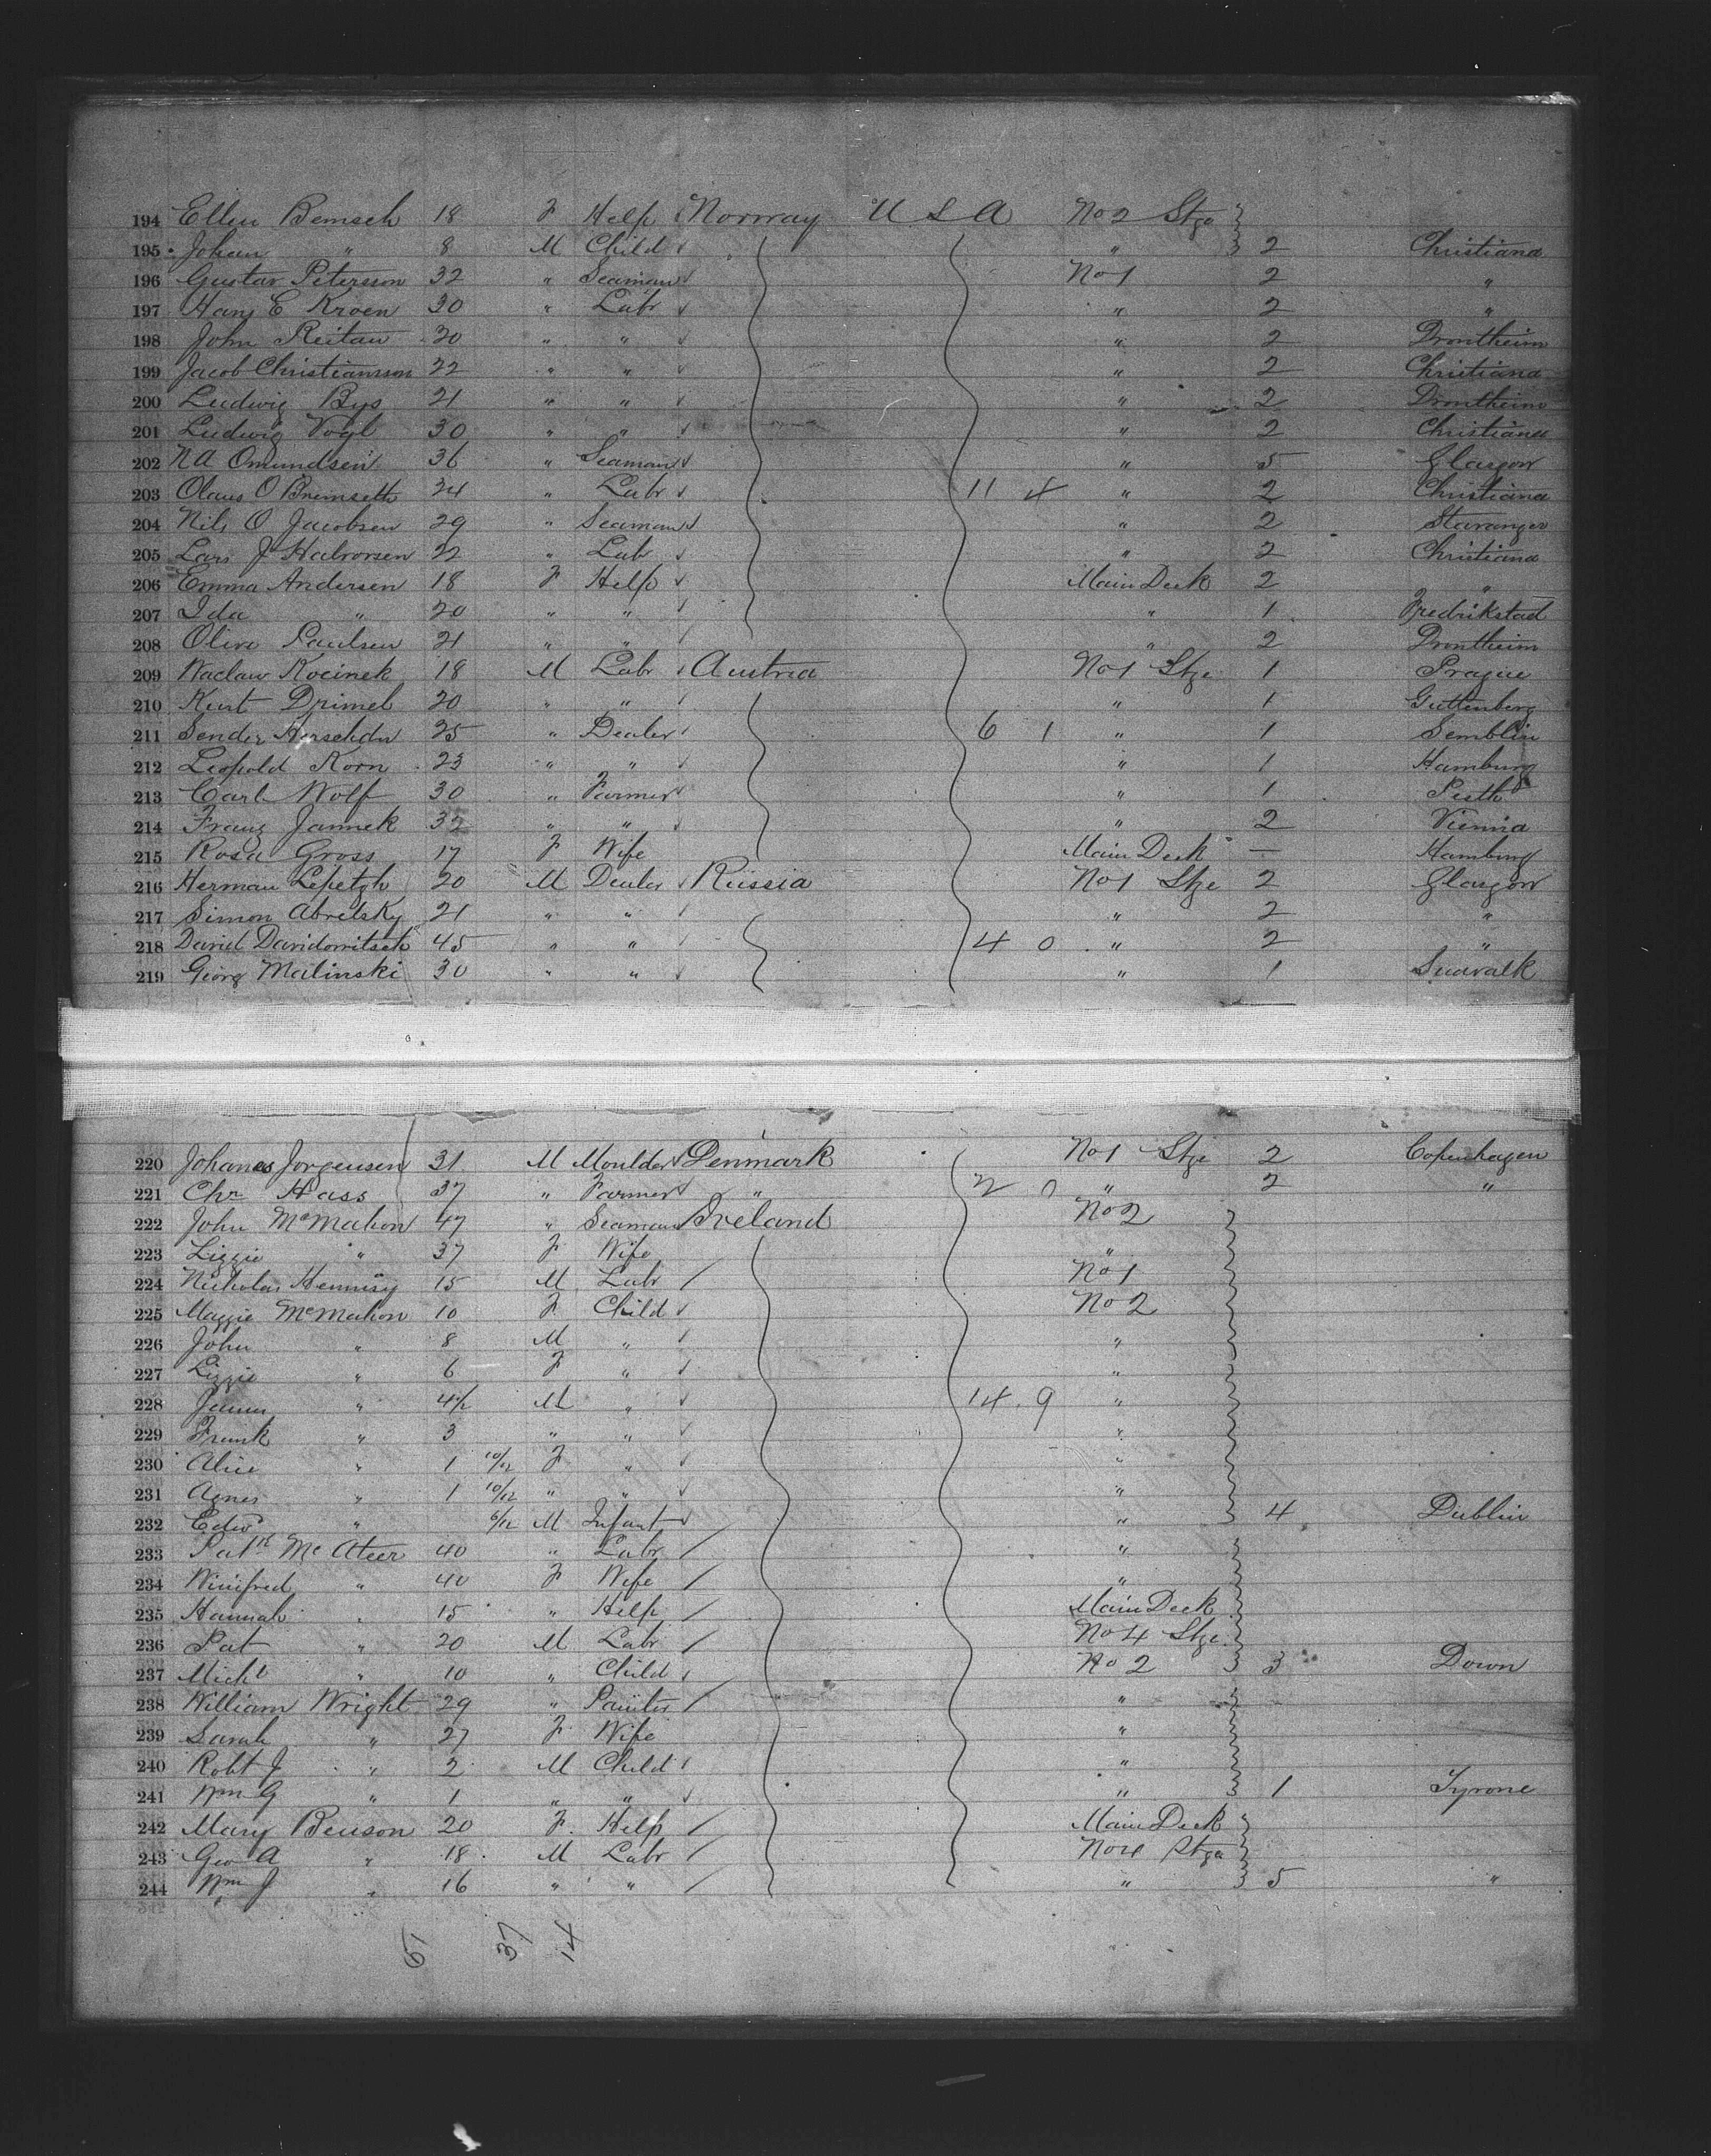 194 Ellen Bemseh 18 F Help Norway U S A No 2 Stge
195 Johan " 8 M Child " 2 Christiana
196 Gustav Petersson 32 " Seaman No 1 2 "
197 Hans E Kroen 30 " Labr " 2 "
198 John Reitan 20 " " " 2 Drontheim
199 Jacob Christiansson 22 " " " 2 Christiana
200 Ludwig Bys 21 " " " 2 Drontheim
201 Ludwig Vogl 30 " " " 2 Christiana
202 N A Omundsen 36 " Seaman " 5 Glasgow
203 Olaus O Bremseth 24 " Labr 11 4 " 2 Christiana
204 Nils O Jacobsen 29 " Seaman " 2 Stavanger
205 Lars J Halvorsen 22 " Labr " 2 Christiana
206 Emma Andersen 18 F Help Main Deck 2 "
207 Ida " 20 " " " 1 Fredrikstad
208 Olive Paulsen 21 " " " 2 Drontheim
209 Waclaw Kocinek 18 M Labr Austria No 1 Stge 1 Prague
210 Kurt Drimel 20 " " " 1 Guttenberg
211 Sender 25 " Dealer 6 1 " 1 Semblin
212 Leopold Korn 23 " " " 1 Hamburg
213 Carl Wolf 30 " Farmer " 1 Pesth
214 Franz Jannek 32 " " " 2 Vienna
215 Rosa Gross 17 F Wife Main Deck — Hamburg
216 Herman Lepetzh 20 M Dealer Russia No 1 Stge 2 Glasgow
217 Simon Abrelsky 21 " " " 2 "
218 David Davidowitsch 45 " " 4 0 " 2 "
219 Georg Malinski 30 " " " 1 Suwalk
220 Johanes Jorgensen 31 M Moulder Denmark No 1 Stge 2 Copenhagen
221 Chr Hass 37 " Farmer " 2 0 " 2 "
222 John McMahon 47 " Seaman Ireland No 2
223 Lizzie " 37 F Wife "
224 Nicholas Hennisy 15 M Labr No 1
225 Maggie McMahon 10 F Child No 2
226 John " 8 M " "
227 Lizzie " 6 F " "
228 " 4½ M " 14 9 "
229 Frank " 3 " " "
230 Alice " 1 10/12 F " "
231 Agnes " 1 10/12 " " "
232 Edwd " 6/12 M Infant " 4 Dublin
233 Patk McAteer 40 " Labr "
234 Winifred " 40 F Wife "
235 Hannah " 15 " Help Main Deck
236 Pat " 20 M Labr No 4 Stge
237 Michl " 10 " Child No 2 3 Down
238 William Wright 29 " Painter "
239 Sarah " 27 F Wife "
240 Robt J " 2 M Child "
241 Wm G " 1 " " " 1 Tyrone
242 Mary Benson 20 F Help Main Deck
243 Geo A " 18 M Labr No 4 Stge
244 Wm J " 16 " " " 5 "
51 37 14